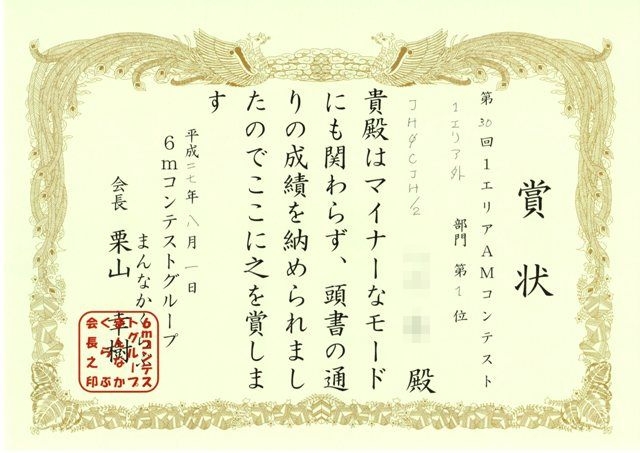 賞状
第30回1エリアAMコンテスト
1エリア外 部門 第1位
JHØCJH/2
殿
貴殿はマイナーなモード
にも関わらず、頭書の通
りの成績を納められまし
たのでここに之を賞しま
す
平成二七年八月一日
6mコンテストグループ
まんなか
会長 栗山 幸樹
6mコンテス
トグループ
まんなか
くらぶ
会長之印